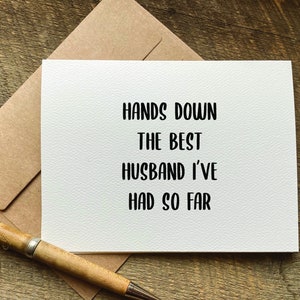 HANDS DOWN
THE BEST
HUSBAND I'VE
HAD SO FAR